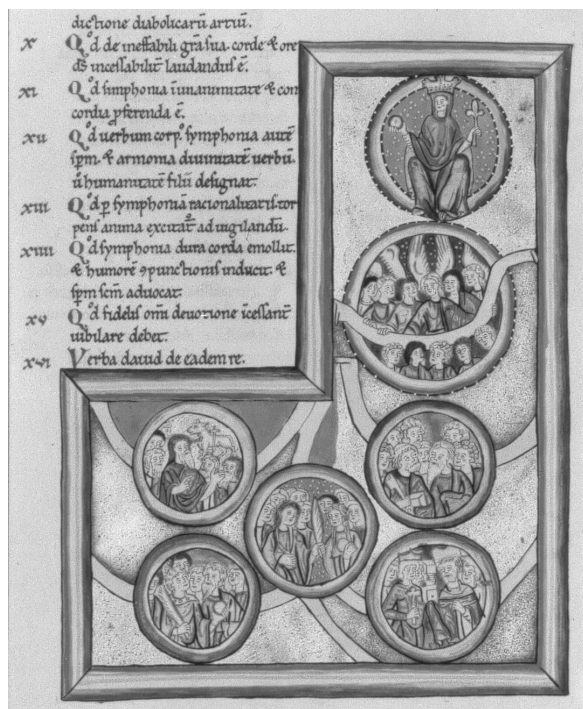 dictione diabolicarū artiū.
x Qͦd de ineffabili gr̄a sua corde & ore
d̄s incessabilit̄ laudandus ē.
xi Qͦd simphonia ī unanimitate & con
cordia ꝓferenda ē.
xii Qͦd uerbum corp̄. symphonia autē
sp̄m. & armonia diuinitatē uerbū
ū humanitatē filii designat.
xiii Qͦd ꝑ symphoniā racionalitatis tor
pens anima excitat᷑ ad uigilandū.
xiiii Qͦd symphonia dura corda emollit.
& humorē ꝯpunctionis inducit. &
sp̄m sc̄m aduocat.
xv Qͦd fidelis om̄i deuotione īcessant̄
iubilare debet.
xvi Verba dauid de eadem re.